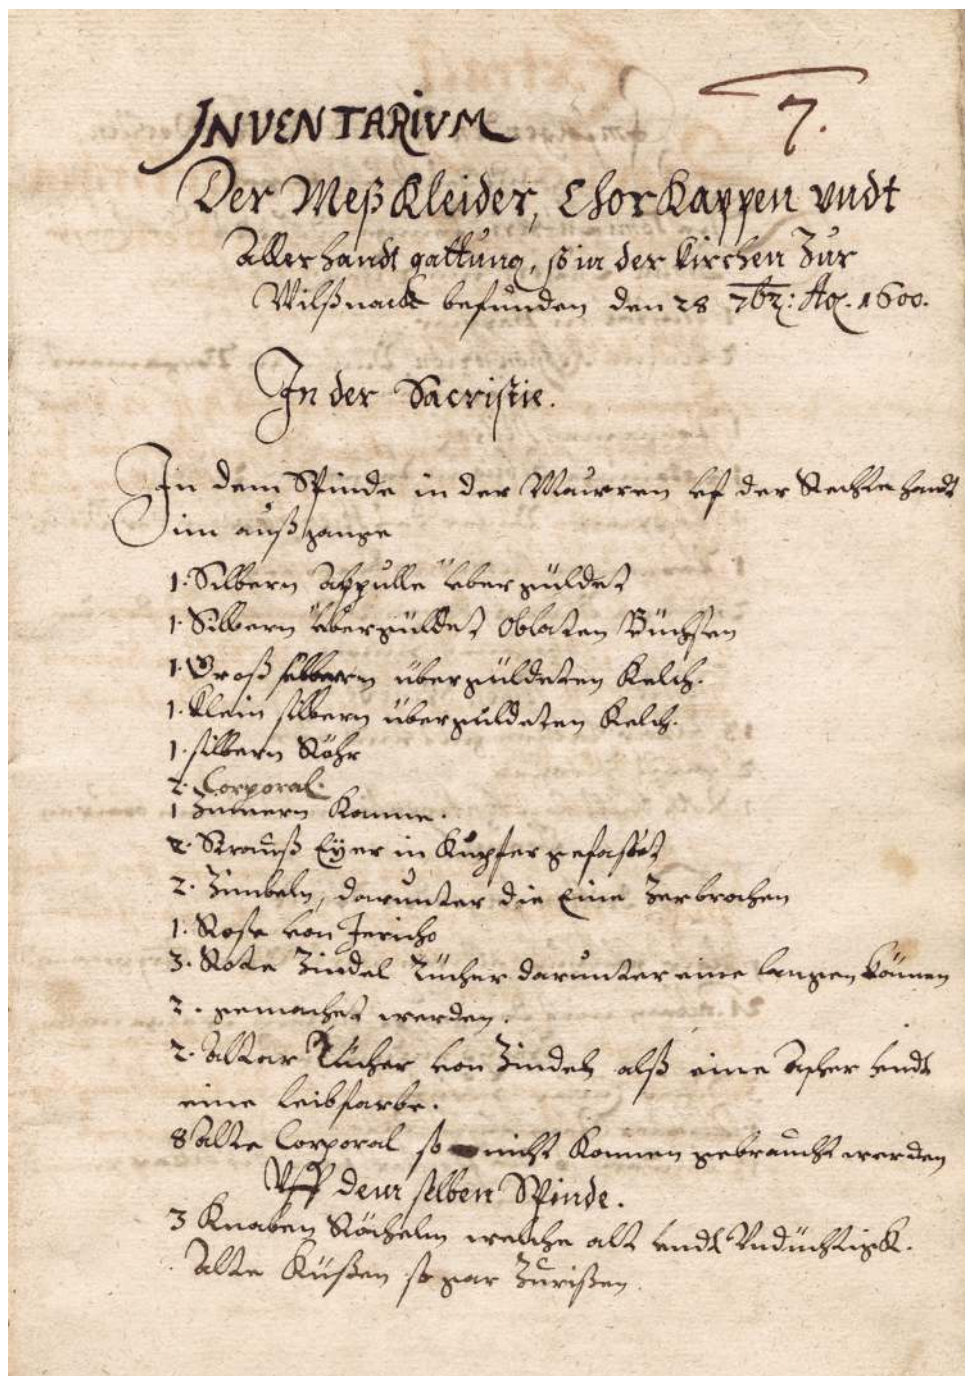 INVENTARIVM
7.
Der Meß Kleider, Chor Kappen vndt
Aller handt gattung, so in der Kirchen Zur
Wilßnack befunden den 28 7br: Ao. 1600.
In der Sacristie.
In dem Spinde in der Maurren vf der Rechten handt
im außgange
1. Silbern Appulle vberguldet
1. Silbern vbergüldet Oblaten Büchsen
1. Groß silbern übergüldeten Kelch.
1. Klein silbern übergüldeten Kelch.
1. silbern Röhr
2. Corporal.
1 Zinnern Kanne.
2. Strauß Eÿer in Kupfer gefasset
2. Zimbeln, darunter die Eine Zerbrochen
1. Rose von Jericho
3. Rote Zindel Tücher darunter eine langen können
2. gemachet werden.
2. Altar Tücher von Zindel alß eine Ascher vndt
eine leibfarbe.
8 alte Corporal so nicht konnen gebraucht werden
Vff dem selben Spinde.
3 Knaben Röcheln welche alt vndt Vndüchtigk.
Alte Küßen so gar Zurißen.